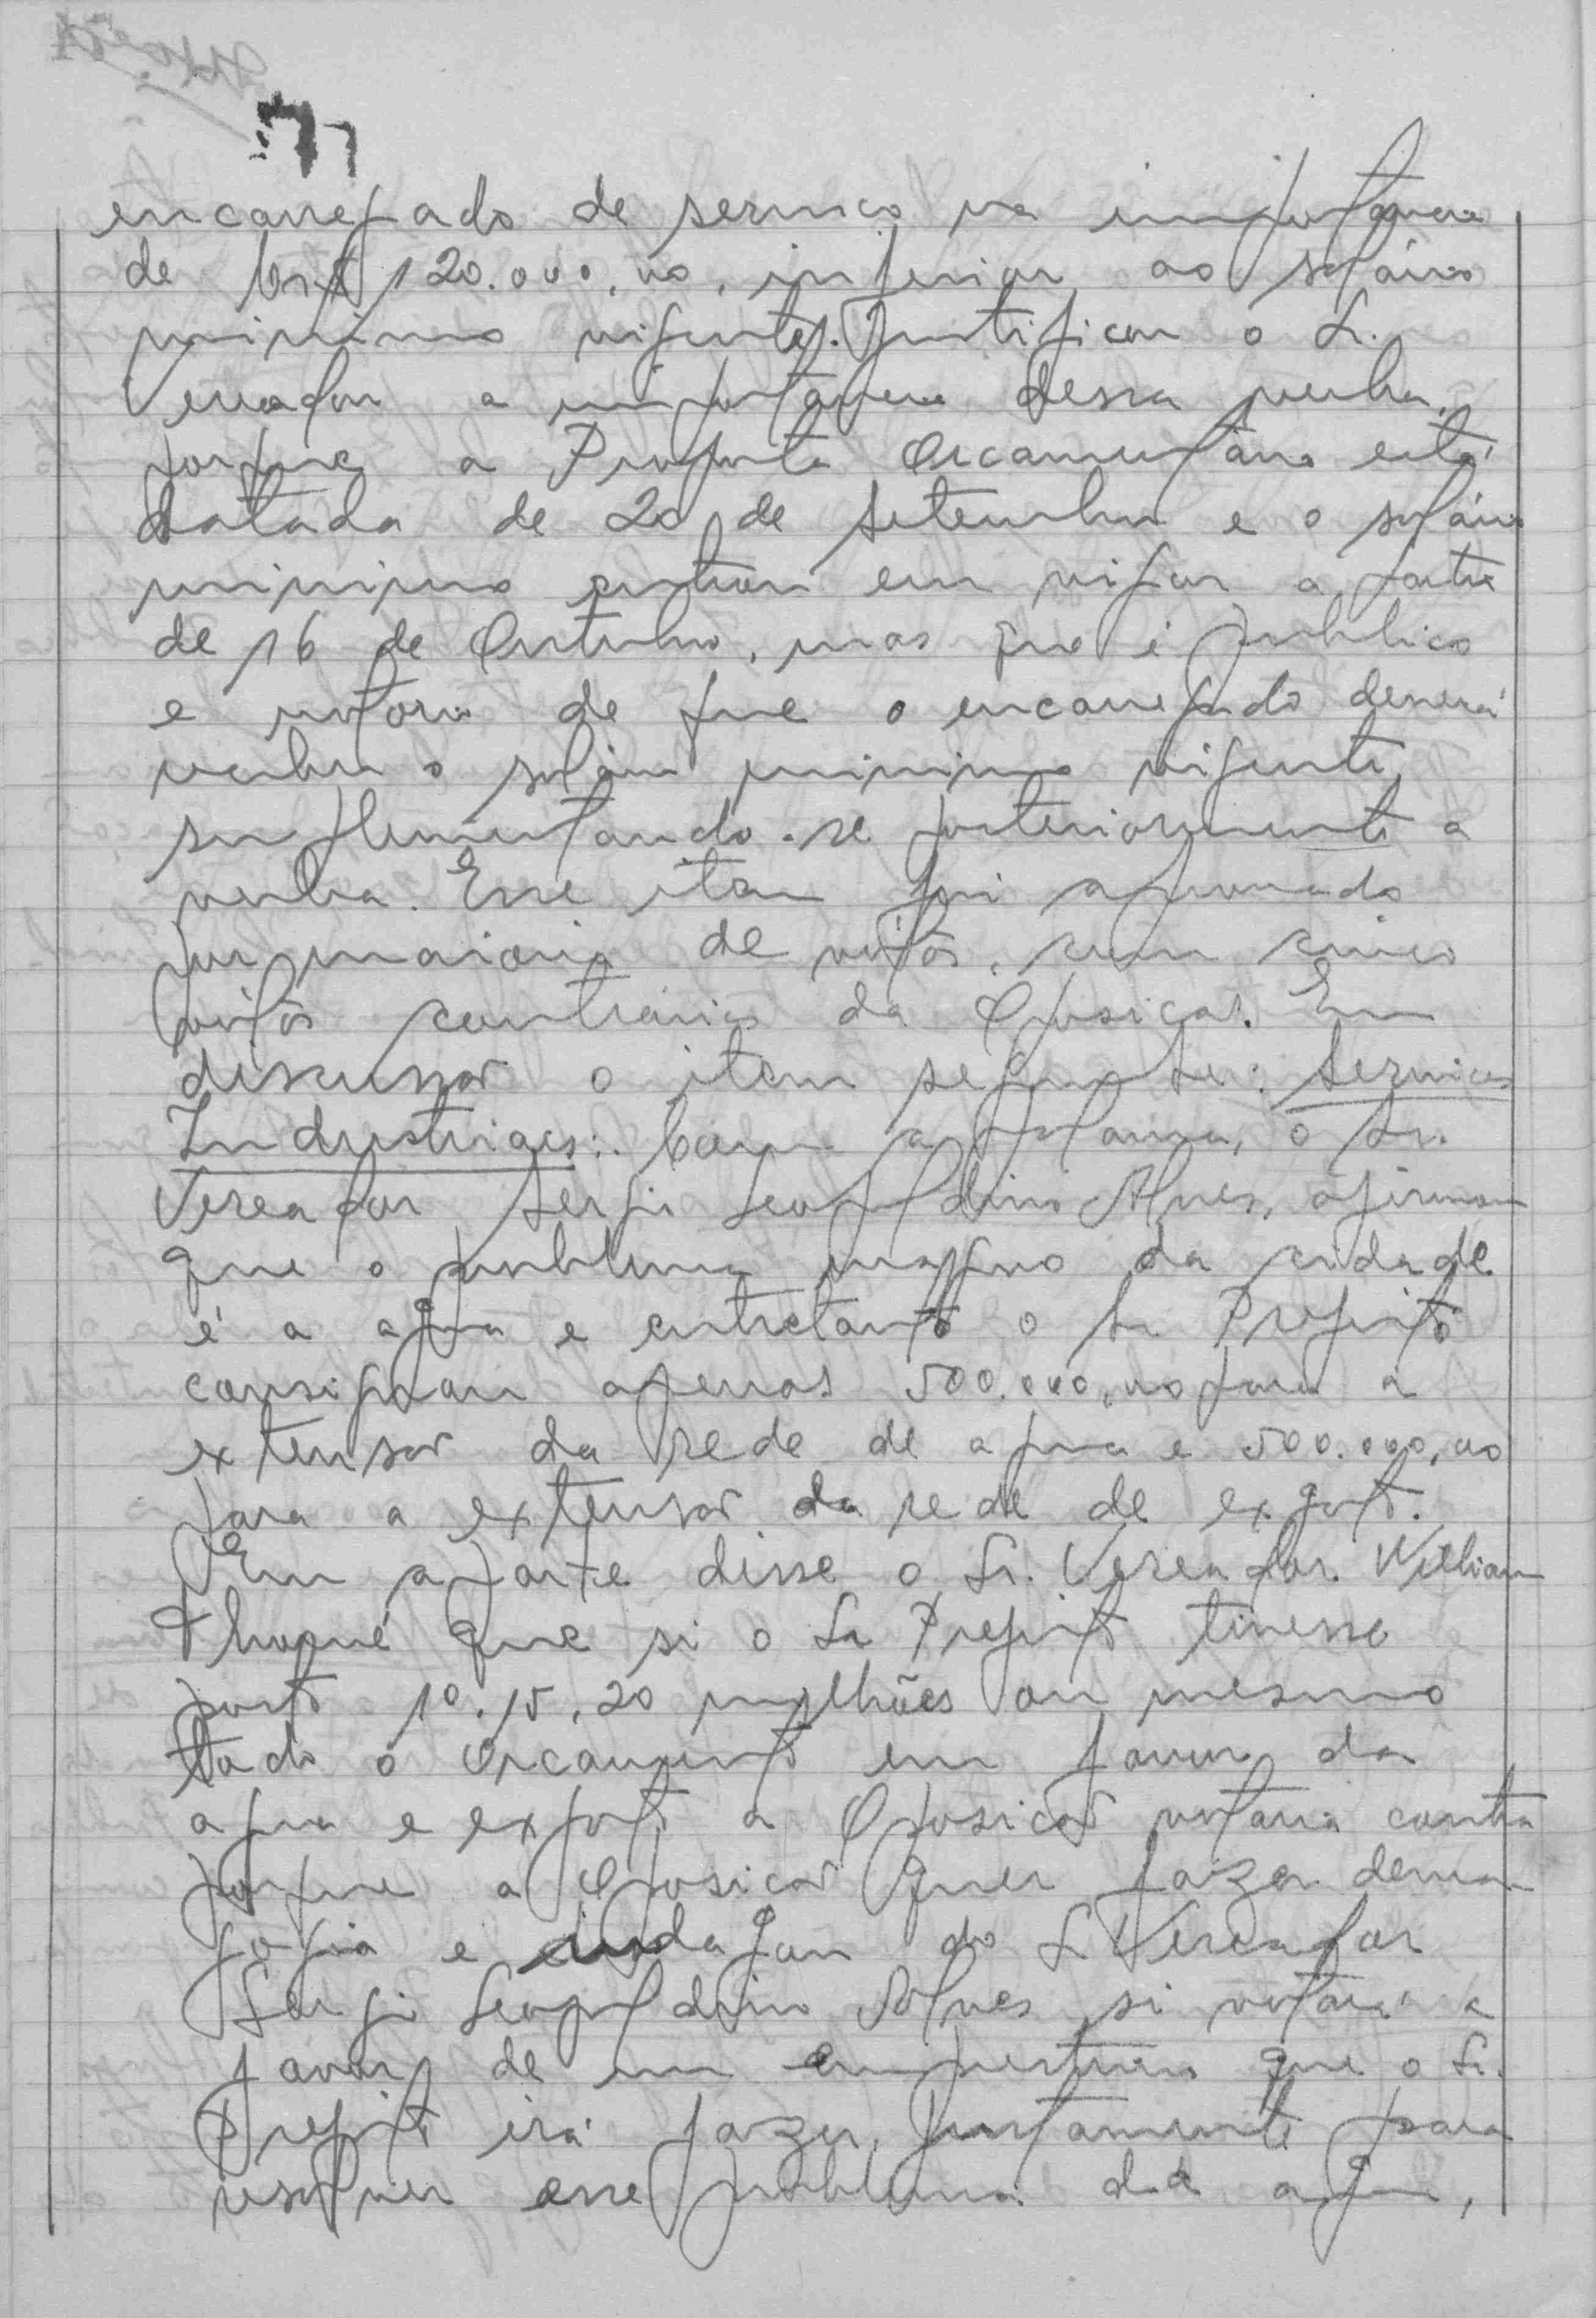 encarregado de serviço na importancia
de Cr$ 120.000,00, inferior ao salário
minimo vigente. Justificou o Sr.
Vereador a importancia dessa verba,
porque a Proposta Orcamentária está
datada de 20 de Setembro e o salário
minimo entrou em vigor a partir
de 16 de Outubro, mas que é publico
e notorio de que o encarregado deverá
receber o salário minimo vigente,
suplementando-se posteriormente a
verba. Esse item foi aprovado
por maioria de votos, com cinco
votos contrários da Oposicão. Em
discussão o item seguinte: Servicos
Industriaes: Com a palavra, o Sr.
Vereador Sergio Leopoldino Alves, afirmou
que o problema magno da cidade
é a agua e entretanto o Sr Prefeito
consignou apenas 500.000,00 para a
extensão da rede de agua e 500.000,00
para a extensão da rede de exgoto.
Em aparte disse o Sr. Vereador William
que si o Sr Prefeito tivesse
posto 10, 15, 20 milhões ou mesmo
todo o Orcamento em favor da
agua e exgoto a Oposicão votaria contra
porque a Oposicão quer fazer dema-
gogia e indagou do Sr Vereador
Sergio Leopoldino Alves si votará a
favor de um emprestimo que o Sr.
Prefeito irá fazer, justamente para
resolver esse problema da agua,